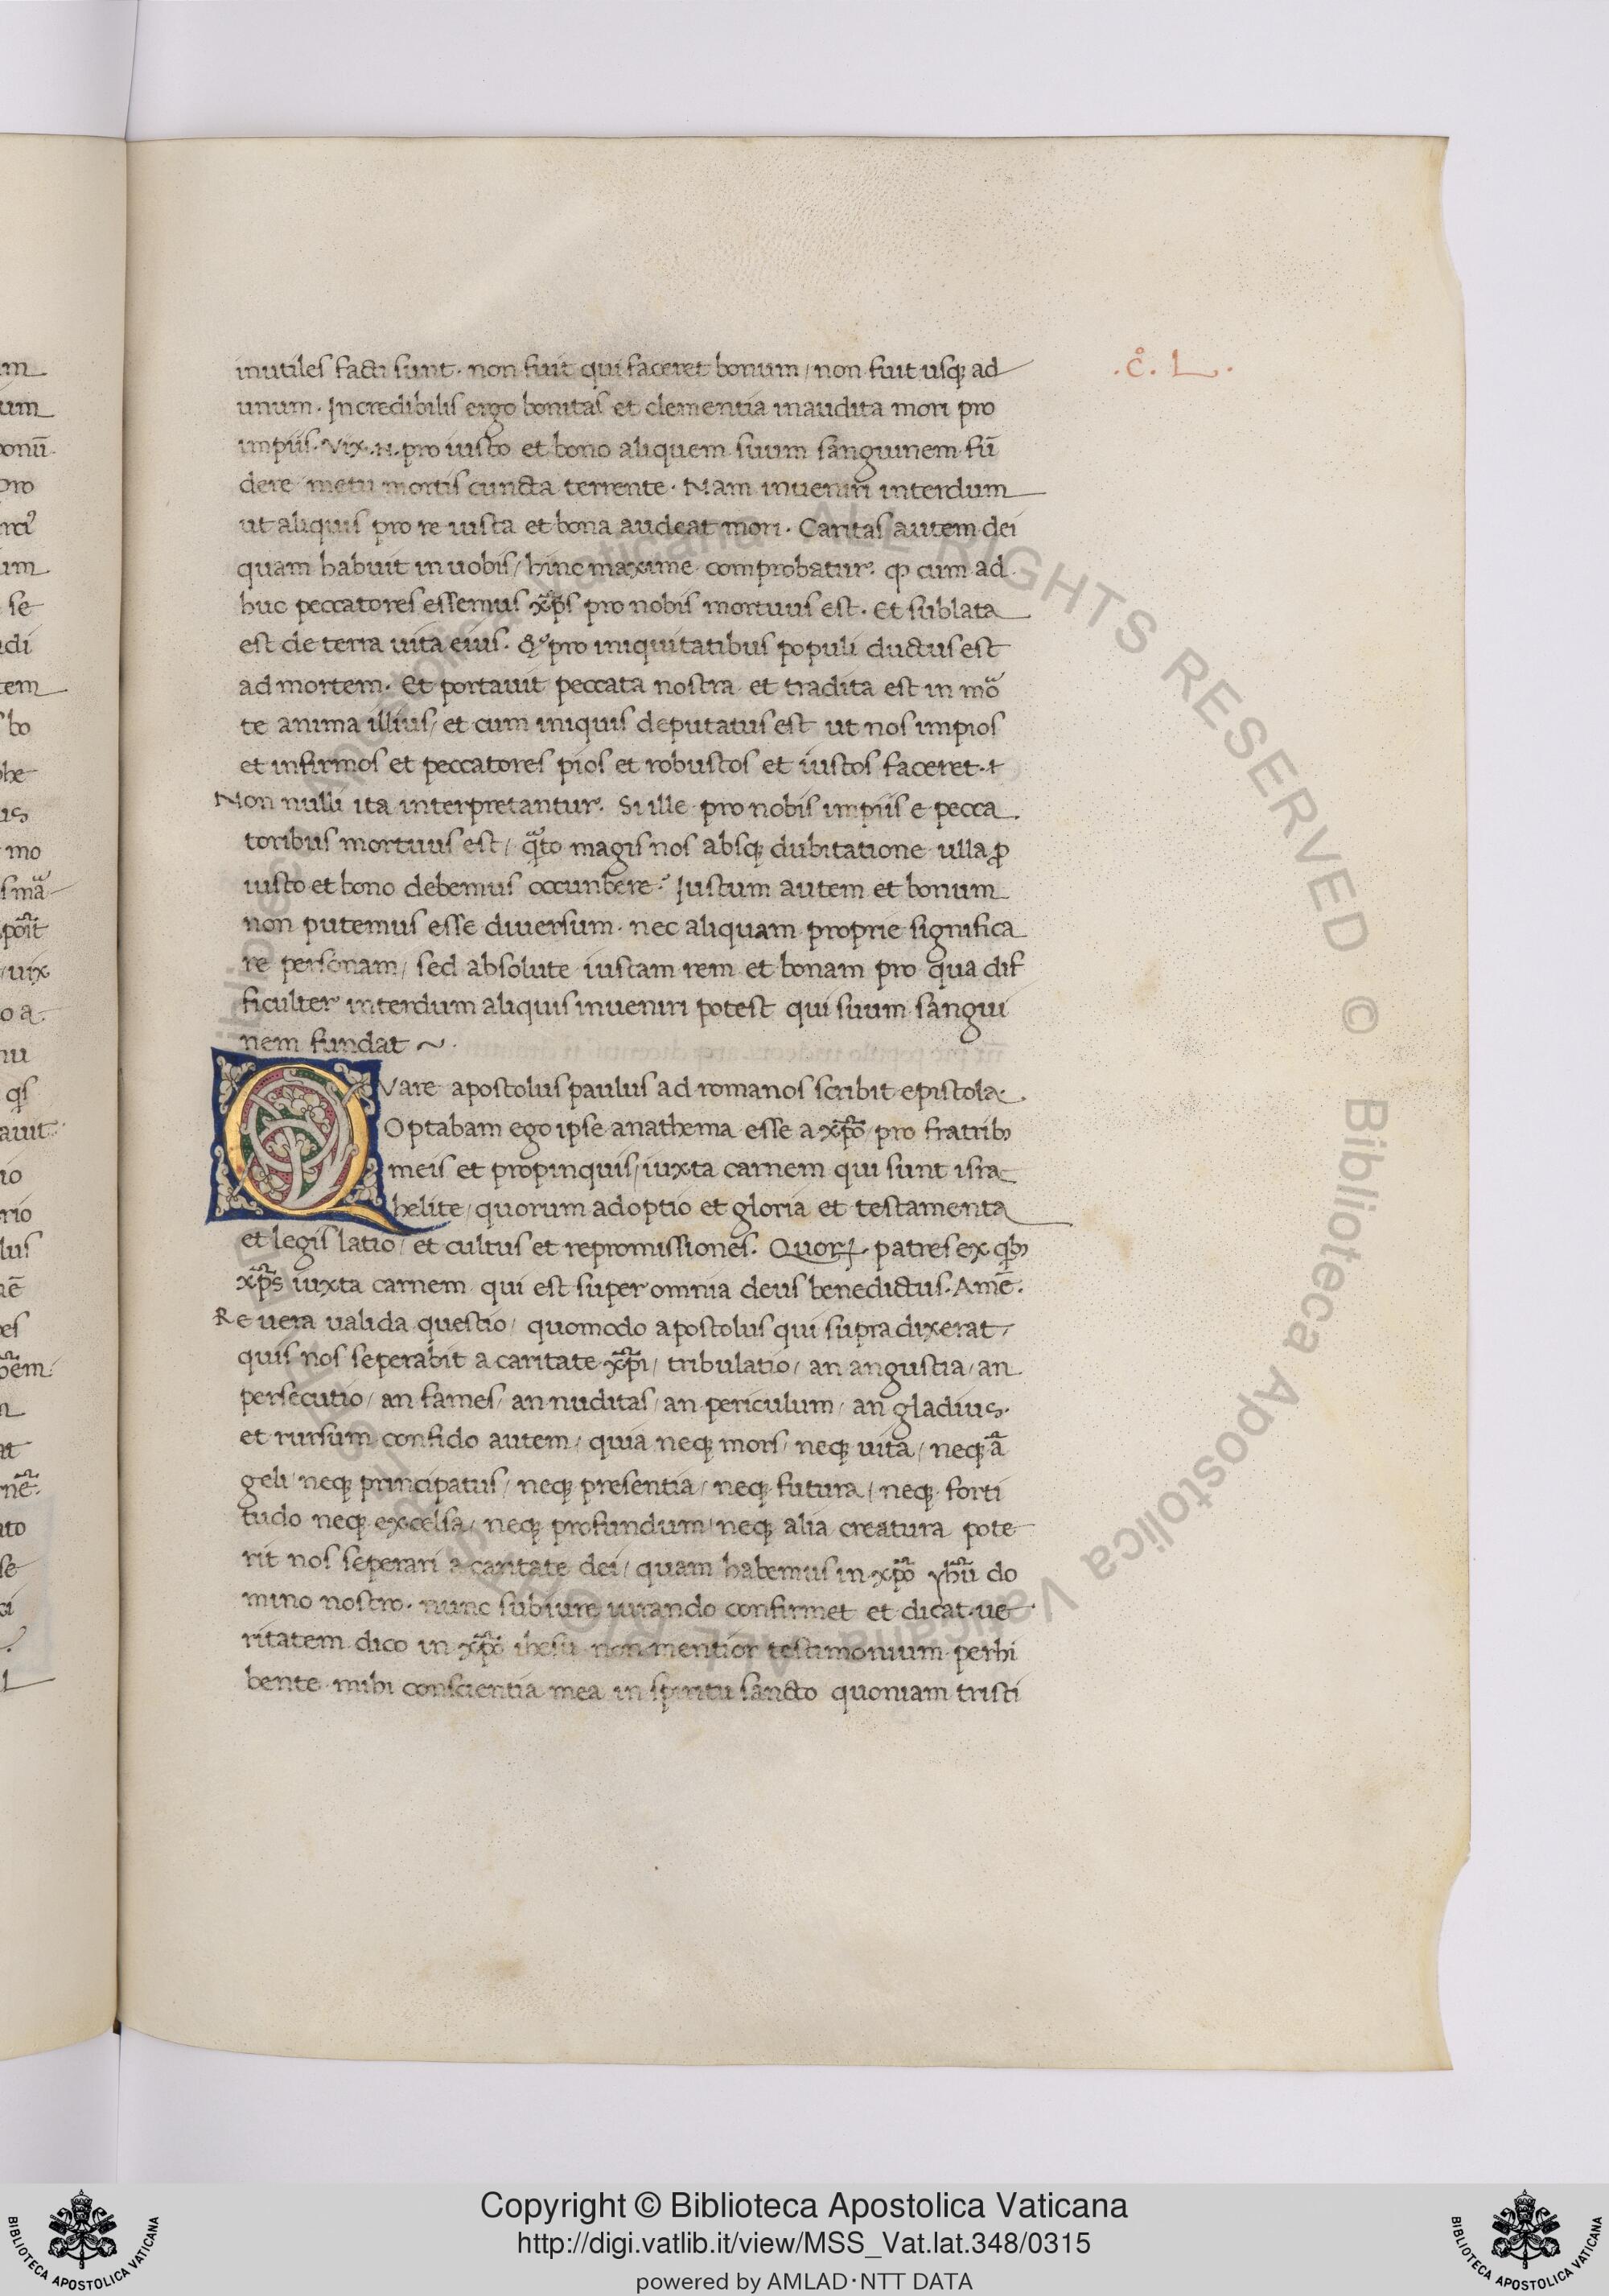 inutiles facti sunt. non fuit qui faceret bonum / non fuit usqꝫ ad
.c̊. L.
unum. Incredibilis ergo bonitas et clementia inaudita mori pro
impiis. Vix .N. pro iusto et bono aliquem suum sanguinem fū
dere metu mortis cuncta terrente. Nam inueniri interdum
ut aliquis pro re iusta et bona audeat mori. Caritas autem dei
quam habuit in uobis / hinc maxime comprobatur. ꝙ cum ad
huc peccatores essemus xp̄s pro nobis mortuus est. Et sublata
est de terra uita eius. pro iniquitatibus populi ductus est
ad mortem. Et portauit peccata nostra et tradita est in mō
te anima illius / et cum iniquis deputatus est ut nos impios
et infirmos et peccatores pios et robustos et iustos faceret.
Non nulli ita interpretantur. Si ille pro nobis impiis e pecca
toribus mortuus est / q̄to magis nos absqꝫ dubitatione ulla ꝓ
iusto et bono debemus occunbere. Iustum autem et bonum
non putemus esse diuersum. nec aliquam proprie significa
re personam / sed absolute iustam rem et bonam pro qua dif
ficulter interdum aliquis inueniri potest qui suum sangui
nem fundat ~
QVare apostolus paulus ad romanos scribit epistola.
Optabam ego ipse anathema esse a xp̄o / pro fratribꝫ
meis et propinquis / iuxta carnem qui sunt isra
helite / quorum adoptio et gloria et testamenta
et legis latio / et cultus et repromissiones. Quoꝝ patres ex qbꝫ
xp̄s iuxta carnem qui est super omnia deus benedictus. Amē.
Re uera ualida questio / quomodo apostolus qui supra dixerat /
quis nos seperabit a caritate xp̄i / tribulatio / an angustia / an
persecutio / an fames / an nuditas / an periculum / an gladius.
et rursum confido autem / quia neqꝫ mors / neqꝫ uita / neqꝫ ā
geli / neqꝫ principatus / neqꝫ presentia / neqꝫ futura / neqꝫ forti
tudo neqꝫ excelsa / neqꝫ profundum / neqꝫ alia creatura pote
rit nos seperari a caritate dei / quam habemus in xp̄o yhū do
mino nostro. nunc sub iure iurando confirmet et dicat. ue
ritatem dico in xp̄o ihesu non mentior testimonium perhi
bente mihi conscientia mea in spiritu sancto quoniam tristi
Biblioteca Apostolica Vaticana ALL RIGHTS RESERVED ©
Copyright © Biblioteca Apostolica Vaticana
http://digi.vatlib.it/view/MSS_Vat.lat.348/0315
powered by AMLAD·NTT DATA
BIBLIOTECA APOSTOLICA VATICANA
BIBLIOTECA APOSTOLICA VATICANA